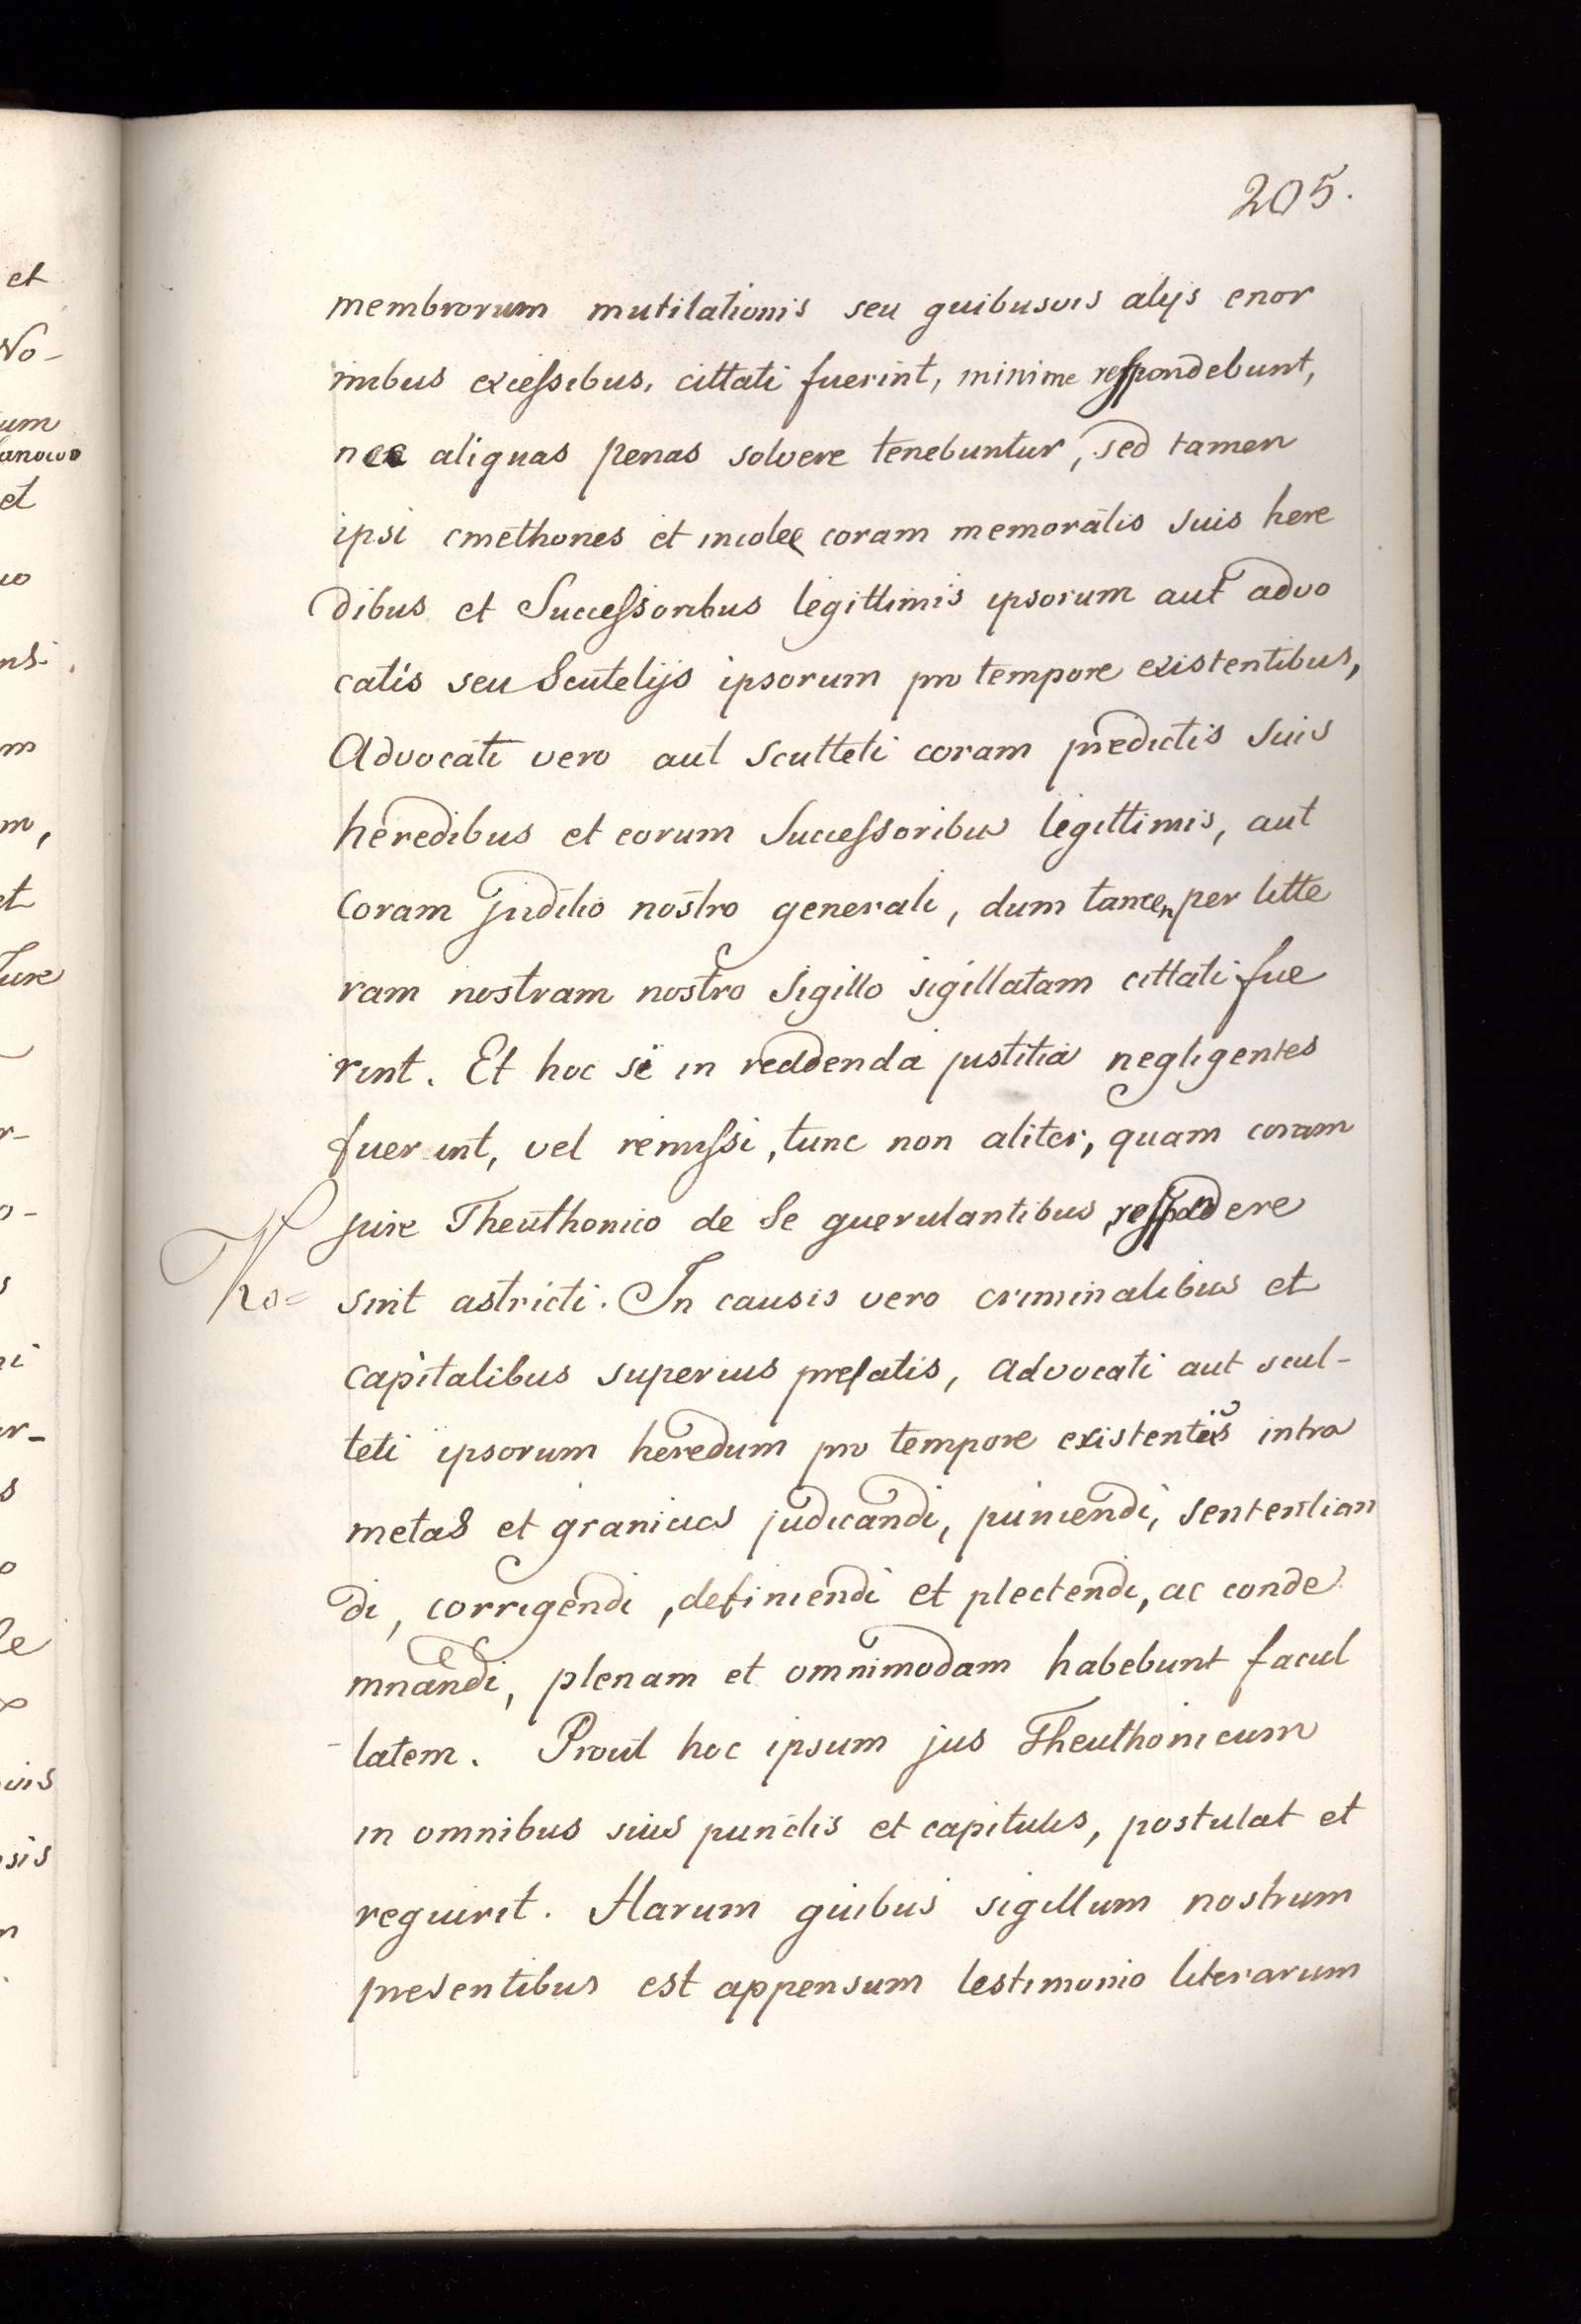 205.
et
No-
um
anowo
et
membrorum mutilationis seu quibusvis alijs enor
mibus excessibus, cittati fuerint, minime respondebunt,
nec aliquas penas solvere tenebuntur, sed tamen
ipsi cmethones et incolee coram memoratis suis here
dibus et Successoribus legittimis ipsorum aut advo
catis seu Scutelijs ipsorum pro tempore existentibus,
Advocati vero aut scutteti coram predictis suis
heredibus et eorum Successoribus legittimis, aut
coram Juditio nostro generali, dum tamen per litte
ram nostram nostro Sigillo sigillatam cittati fue
rint. Et hoc si in reddenda justitia negligentes
fuerint, vel remissi, tunc non aliter, quam coram
jure Theuthonico de Se querulantibus respondere
Ko=
sint astricti. In causis vero criminalibus et
capitalibus superius prefatis, advocati aut scul-
teti ipsorum heredum pro tempore existentes intra
metas et granicias judicandi, puniendi, sententian
di, corrigendi, definiendi et plectendi, ac conde
mnandi, plenam et omnimodam habebunt facul
tatem. Prout hoc ipsum jus Theuthonicum
in omnibus suis punctis et capitulis, postulat et
requirit. Harum quibus sigillum nostrum
presentibus est appensum testimonio literarum